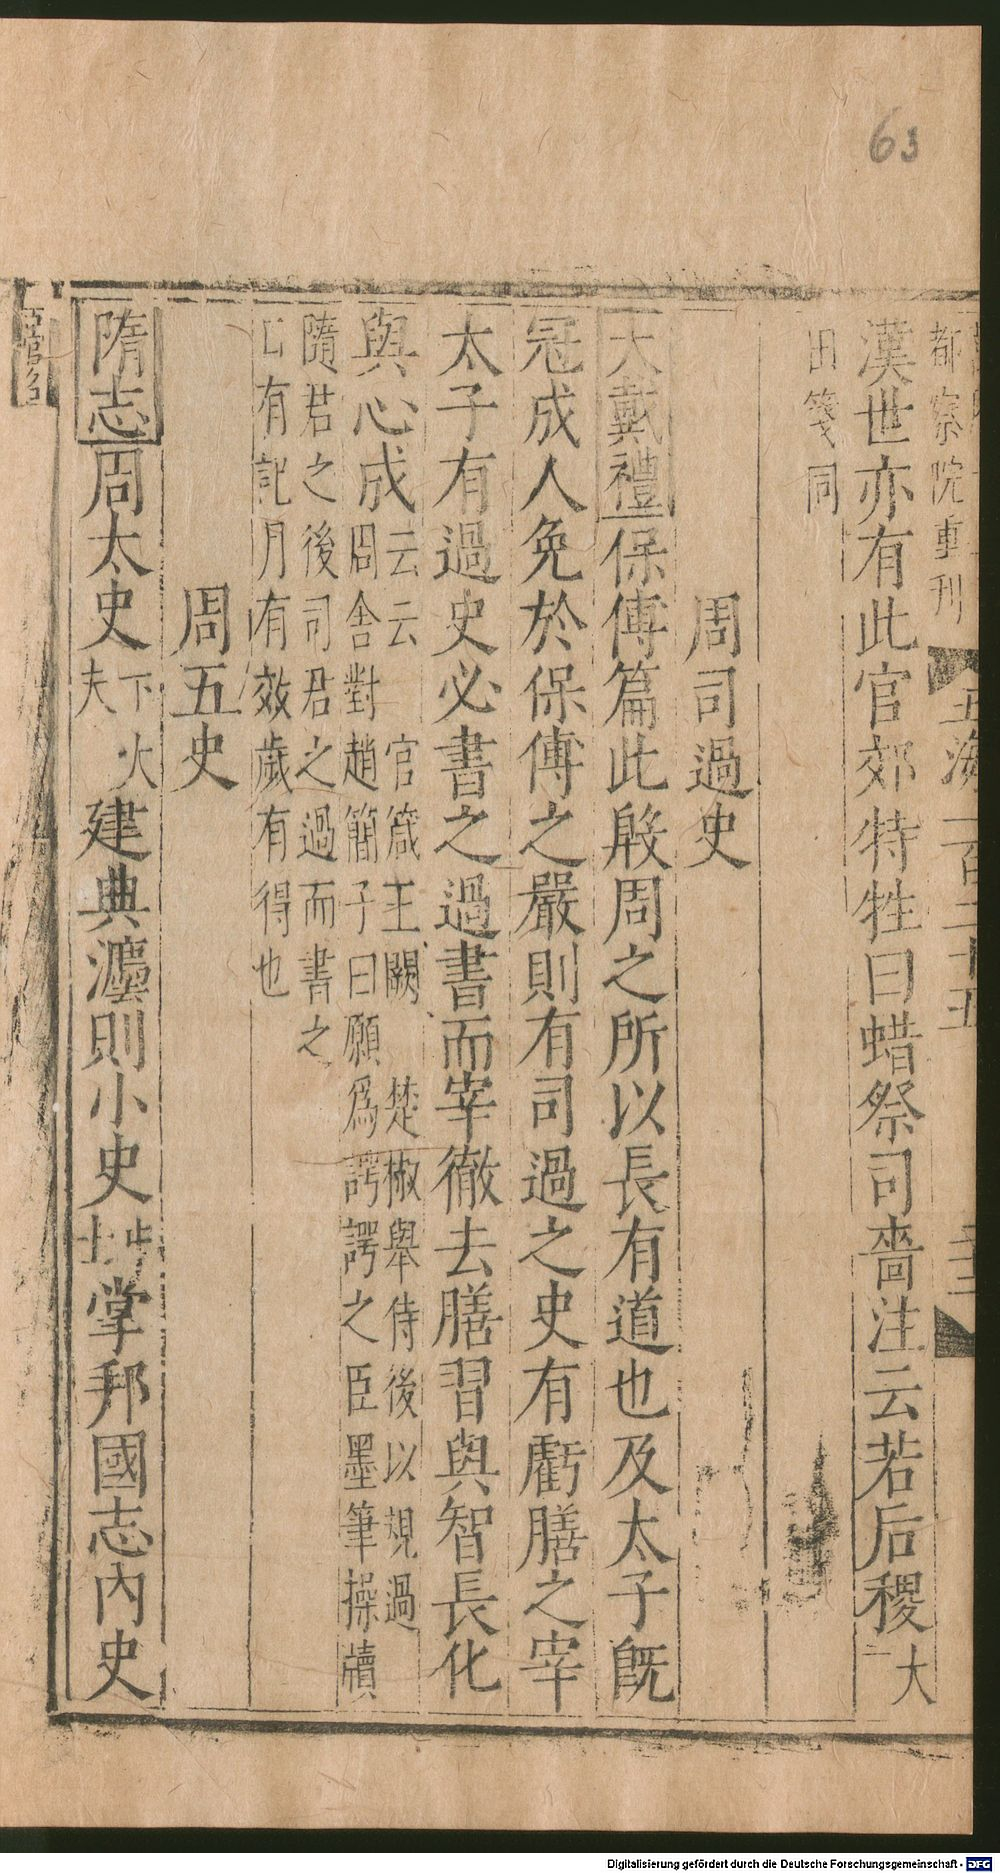 63
都察院重刊
玉海一百二十五
漢世亦有此官郊特牲曰蜡祭司嗇注云若后稷大
田箋同
周司過史
大戴禮保傅篇此殷周之所以長有道也及太子旣
冠成人免於保傅之嚴則有司過之史有虧膳之宰
太子有過史必書之過書而宰徹去膳習與智長化
與心成云云 官箴王闕 楚椒舉侍後以規過
周舍對趙簡子曰願爲諤諤之臣墨筆操牘
隨君之後司君之過而書之
有記月有效歲有得也
周五史
隋志周太史下大夫建典灋則小史中士掌邦國志內史
Digitalisierung gefördert durch die Deutsche Forschungsgemeinschaft - DFG